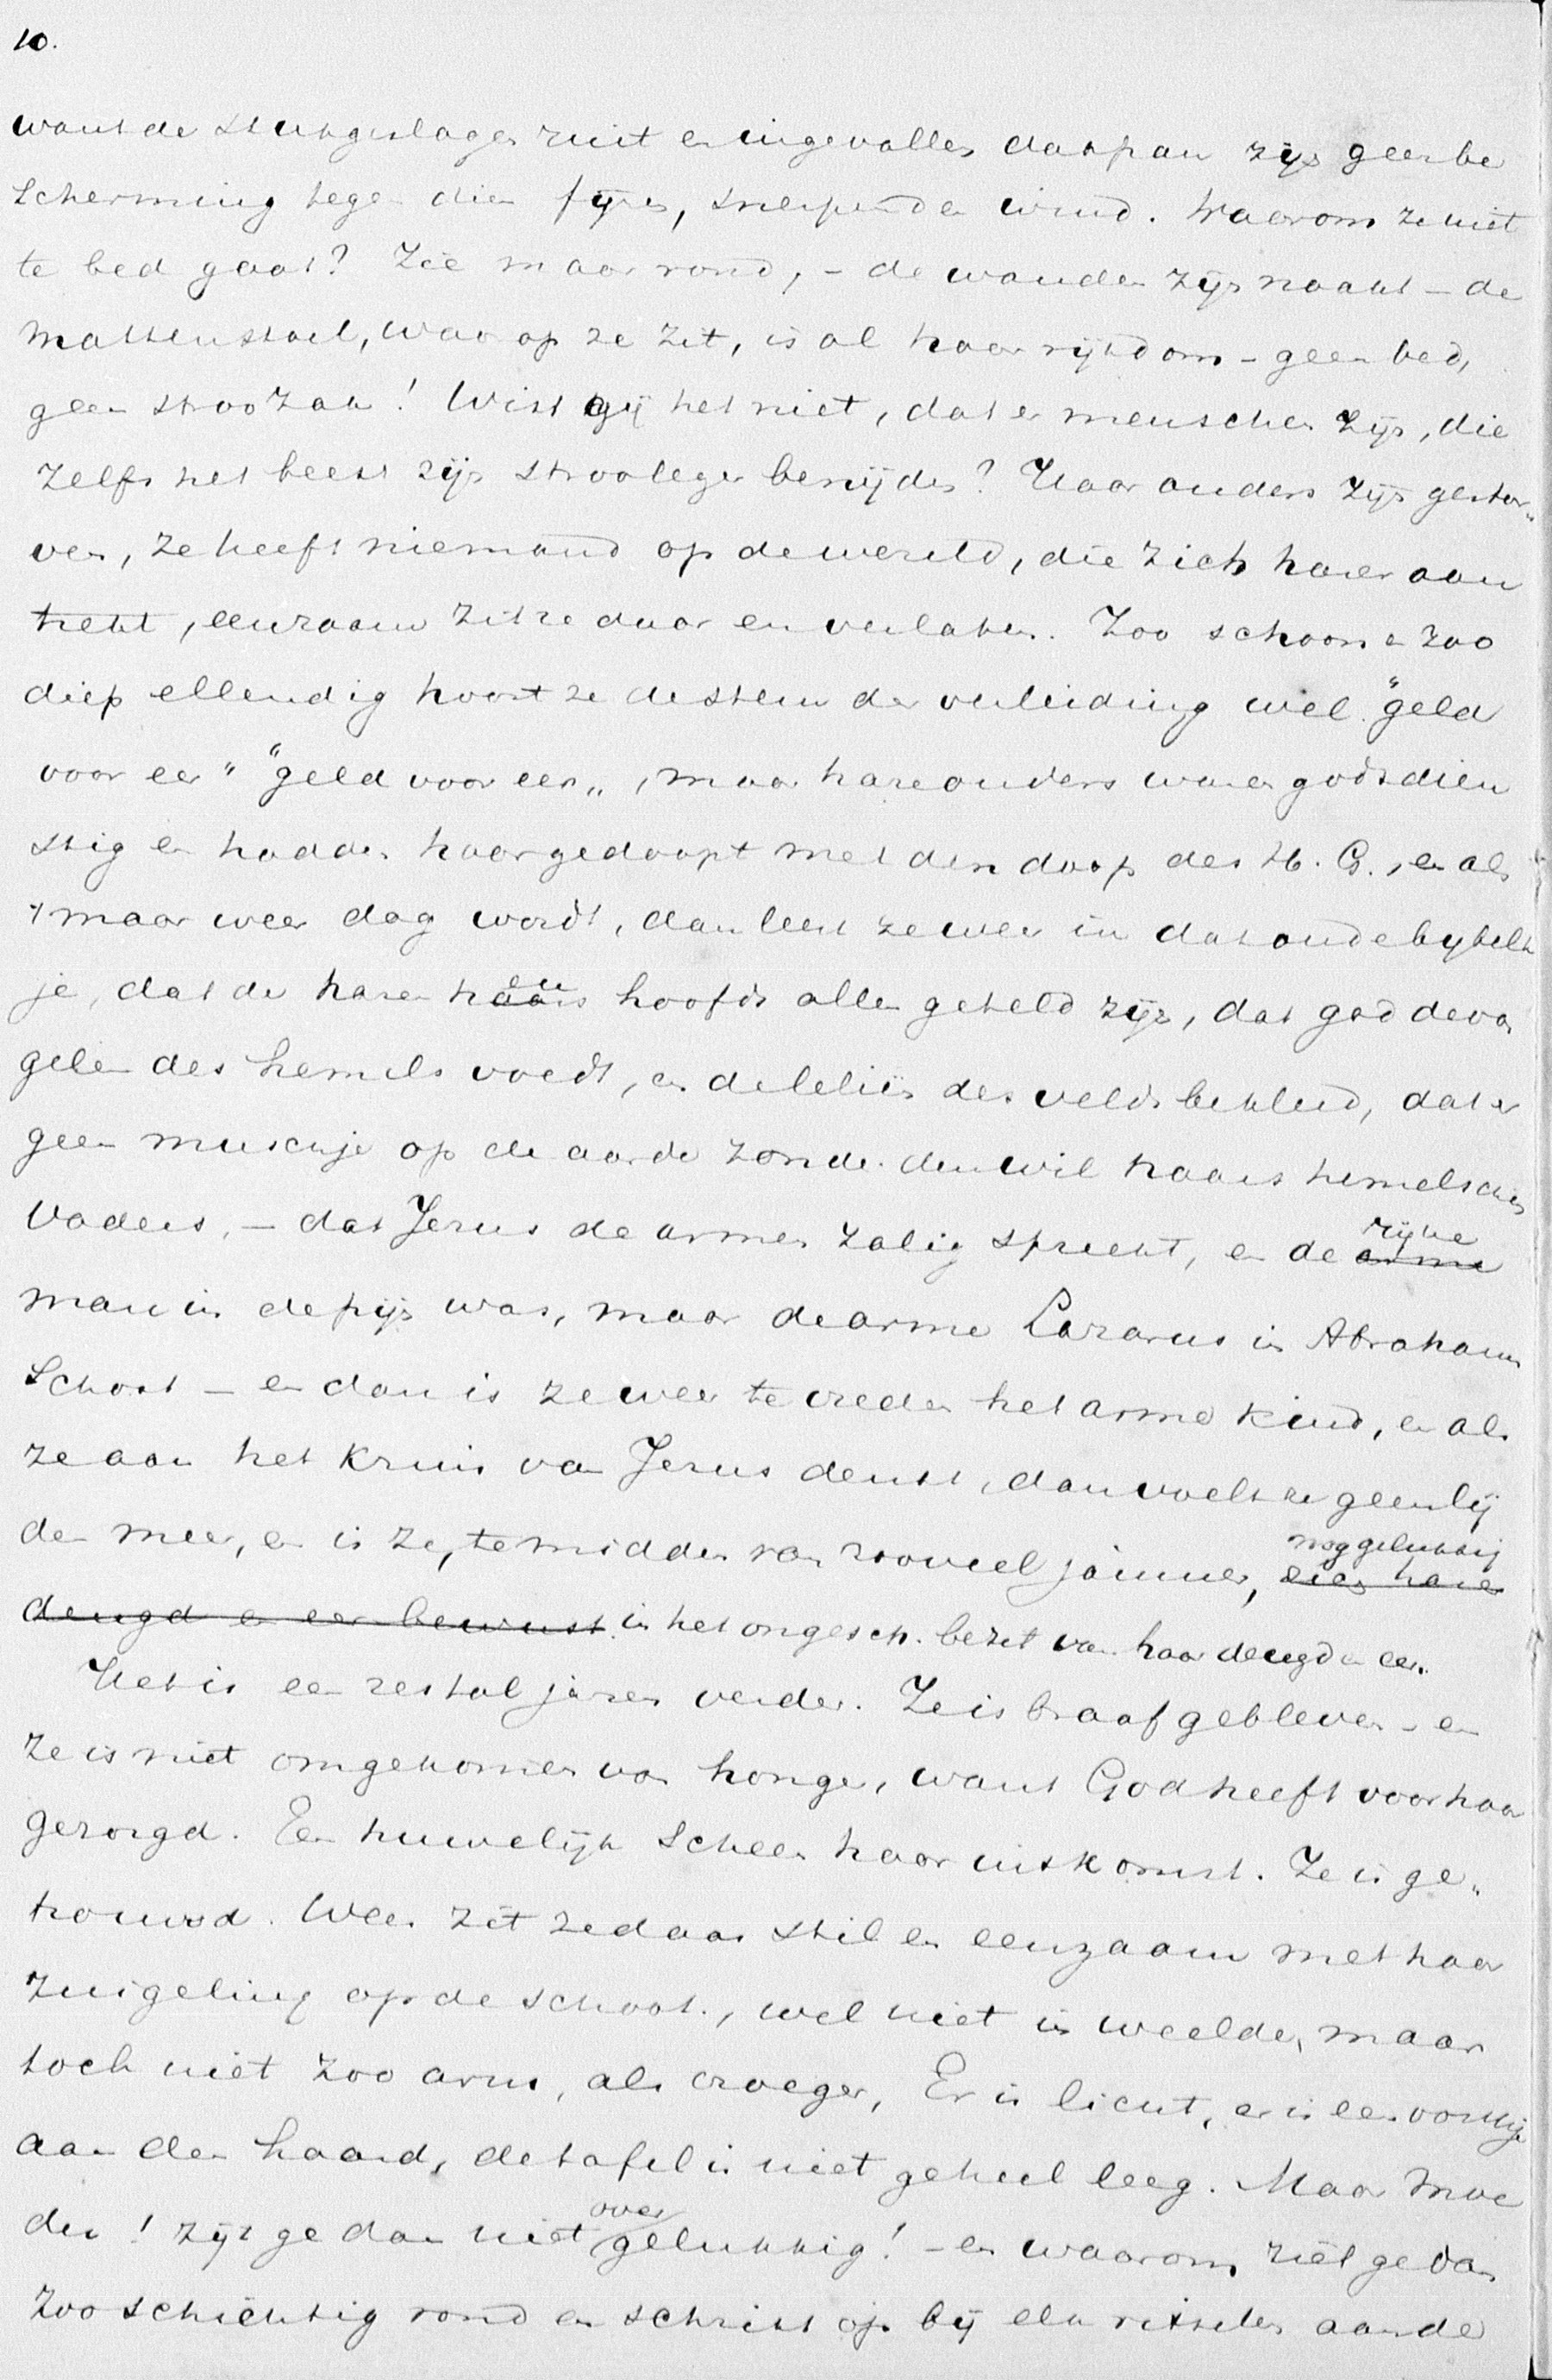 10.
want de stukgeslagen ruit en ingevallen dakpan zijn geen be
scherming tegen dien fijnen, snerpenden wind. Waarom ze niet
te bed gaat? Zie maar rond, – de wanden zijn naakt – de
mattenstoel, waar op ze zit, is al haar rijkdom – geen bed,
geen stroozak! Wist gij het niet, dat er menschen zijn, die
zelfs het beest zijn strooleger benijden? Haar ouders zijn gestor„
ven, ze heeft niemand op de wereld, die zich harer aan
trekt, eenzaam zit ze daar en verlaten. Zoo schoon en zoo
diep ellendig hoort ze de stem der verleiding wel. "geld
voor eer" "geld voor eer„, maar hare ouders waren godsdien
stig en hadden haar gedoopt met den doop des H. G., en als
't maar weer dag wordt, dan leest ze weer in dat oude bybelt
je, dat de haren haars hoofds allen geteld zijn, dat god de vo
gelen des hemels voedt, en de leliën des velds bekleed, dat er
geen muschje op de aarde zonder den wil haars hemelschen
Vaders, – dat Jezus de armen zalig spreekt, en de arme rijke
man in de pijn was, maar de arme Lazarus in Abrahams
Schoot – en dan is ze weer te vreden het arme kind, en als
ze aan het kruis van Jezus denkt, dan voelt ze geen lij
den meer, en is ze, te midden van zooveel jammer, nog gelukkig
deugd en eer bewust in het ongesch. bezit van haar deugd en eer.
Het is een zestal jaren verder. Ze is braaf gebleven – en
ze is niet omgekomen van honger, want God heeft voor haar
gezorgd. Een huwelijk scheen haar uitkomst. Ze is ge„
trouwd. Weer zit ze daar stil en eenzaam met haar
zuigeling op de schoot, wel niet in weelde, maar
toch niet zoo arm, als vroeger, Er is licht, er is een vonkje
aan den haard, de tafel is niet geheel leeg. Maar moe
der! zijt ge dan niet over gelukkig! – en waarom ziet ge dan
zoo schichtig rond en schrikt op bij elk ritselen aan de